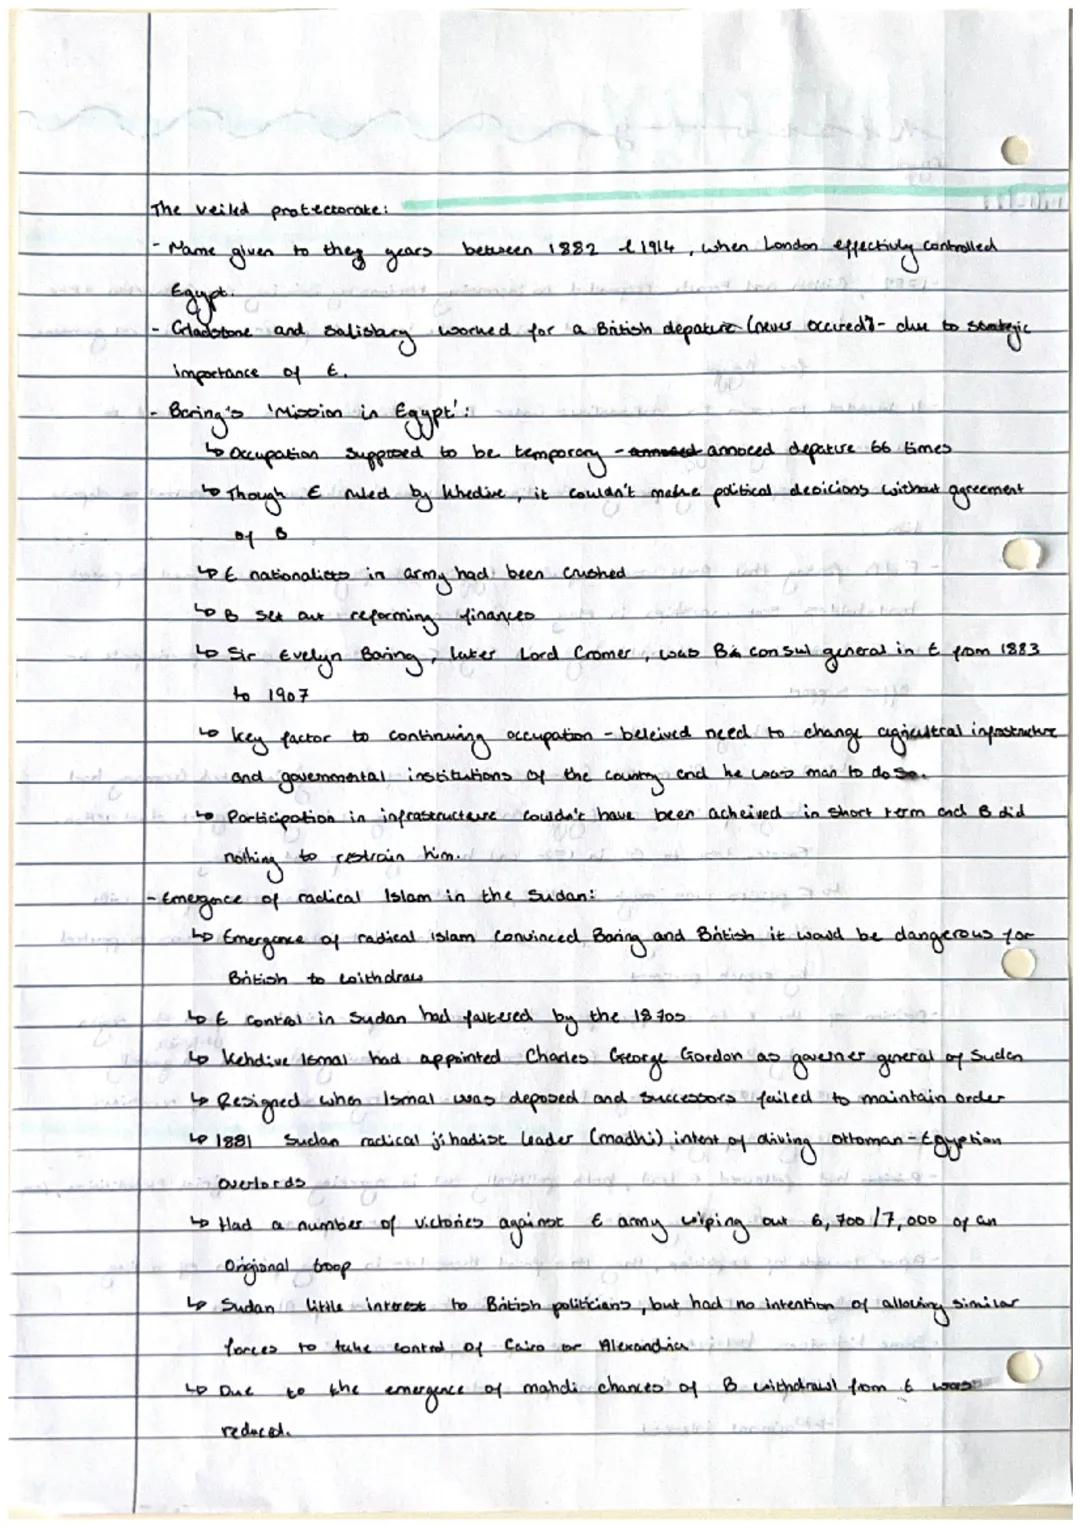 The veiled protectorate:
- Name given to they years between 1882 & 1914, when London effectivly controlled
Egypt.
- Gladstone and salisbary worked for a British depature (never occired) - due to strategic
importance of E.
- Baring's 'Mission in Egypt':
↳ Occupation supposed to be temporary - annoced depature 66 times
↳ Though E ruled by khedive, it couldn't make political descicions without agreement
of B
↳ E nationalists in army had been crushed
↳ B set out reforming finances
↳ Sir Evelyn Baring, later Lord Cromer, was consul general in E from 1883
to 1907
↳ key factor to continuing occupation - beleived need to change agricultral infrastructure
and governmental institutions of the country and he was man to do so.
↳ Participation in infrastructure couldn't have been acheived in short term and B did
nothing to restrain him.
- Emergence of radical Islam in the Sudan:
↳ Emergence of radical islam convinced Baring and British it would be dangerous for
British to withdraw
↳ E control in Sudan had faltered by the 1870s
↳ Kehdive Ismal had appointed Charles George Gordon as governer general of Sudan
↳ Resigned when Ismal was deposed and successors failed to maintain order
↳ 1881 Sudan radical jihadist leader (madhi) intent of driving ottoman-Egyptian
overlords
↳ Had a number of victories against E army wiping out 6,700/7,000 of an
Origional troop
↳ Sudan little interest to British politicians, but had no intention of allowing similar
forces to take control of Cairo or Alexandria
↳ Due to the emergence of mahdi chances of B withdrawl from E was
reduced.